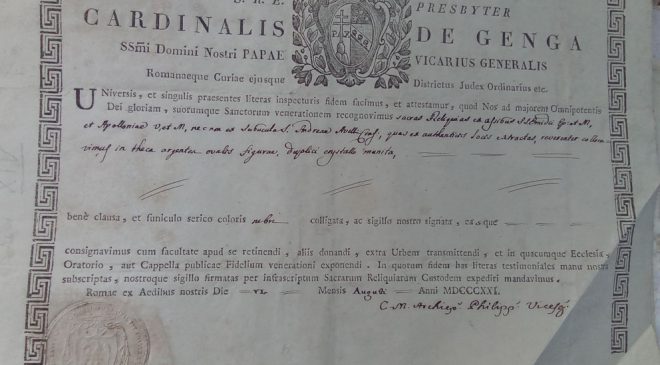 S. R. E.
PRESBYTER
CARDINALIS
DE GENGA
SSmi Domini Nostri PAPAE
VICARIUS GENERALIS
Romanaeque Curiae ejusque
Districtus Judex Ordinarius etc.
Universis, et singulis praesentes literas inspecturis fidem facimus, et attestamur, quod Nos ad majorem Omnipotentis
Dei gloriam, suorumque Sanctorum venerationem recognovimus sacras Reliquias ex ossibus
et Apolloniae V. et M., necnon ex Subucula S. Andreae Avellini Conf., quas ex authenticis locis extractas, reverenter colloca-
vimus in theca argentea ovalis figurae, duplici crystallo munita,
benè clausa, et funiculo serico coloris rubri colligata, ac sigillo nostro signata, easque
consignavimus cum facultate apud se retinendi, aliis donandi, extra Urbem transmittendi, et in quacumque Ecclesia,
Oratorio, aut Cappella publicae Fidelium venerationi exponendi. In quorum fidem has literas testimoniales manu nostra
subscriptas, nostroque sigillo firmatas per infrascriptum Sacrarum Reliquiarum Custodem expediri mandavimus.
Romae ex Aedibus nostris Die VI Mensis Augusti Anni MDCCCXXI.
C. M. Archiep. Philipp. Vicesg.